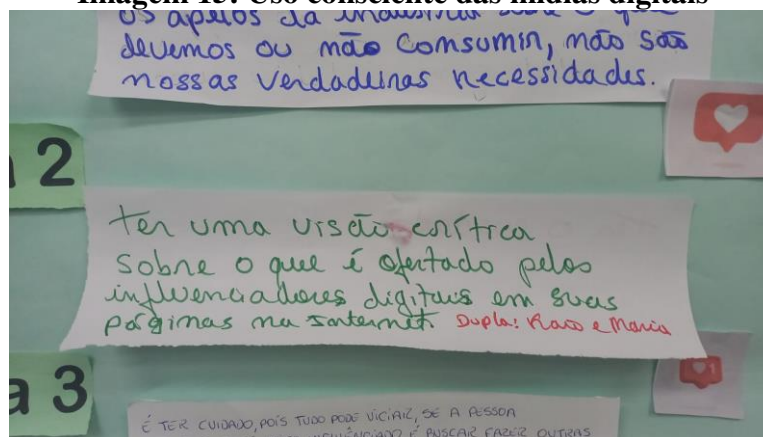 Imagem 15: Uso consciente das mídias digitais
os apelos da indústria sobre o que
devemos ou não consumir, não são
nossas verdadeiras necessidades.
2
ter uma visão crítica
sobre o que é ofertado pelos
influenciadores digitais em suas
páginas na Internet. Dupla: e Maria
a 3
É TER CUIDADO, POIS TUDO PODE VICIAR, SE A PESSOA
É BUSCAR FAZER OUTRAS